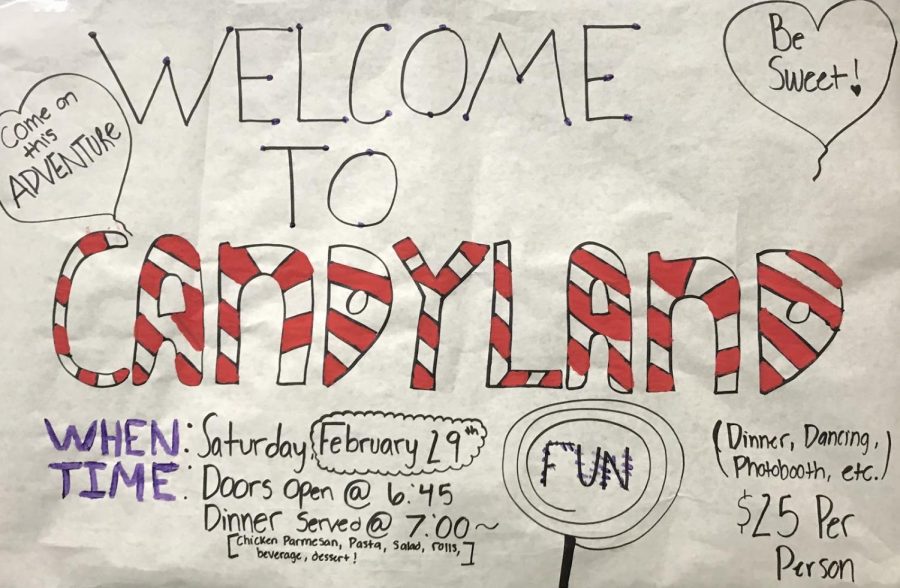 WELCOME
TO
CANDYLAND
Come on
this
ADVENTURE
Be
Sweet!
WHEN: Saturday February 29th
TIME: Doors Open @ 6:45
Dinner Served @ 7:00~
[Chicken Parmesan, Pasta, Salad, rolls,
beverage, dessert!]
FUN
(Dinner, Dancing,
Photobooth, etc.)
$25 Per
Person